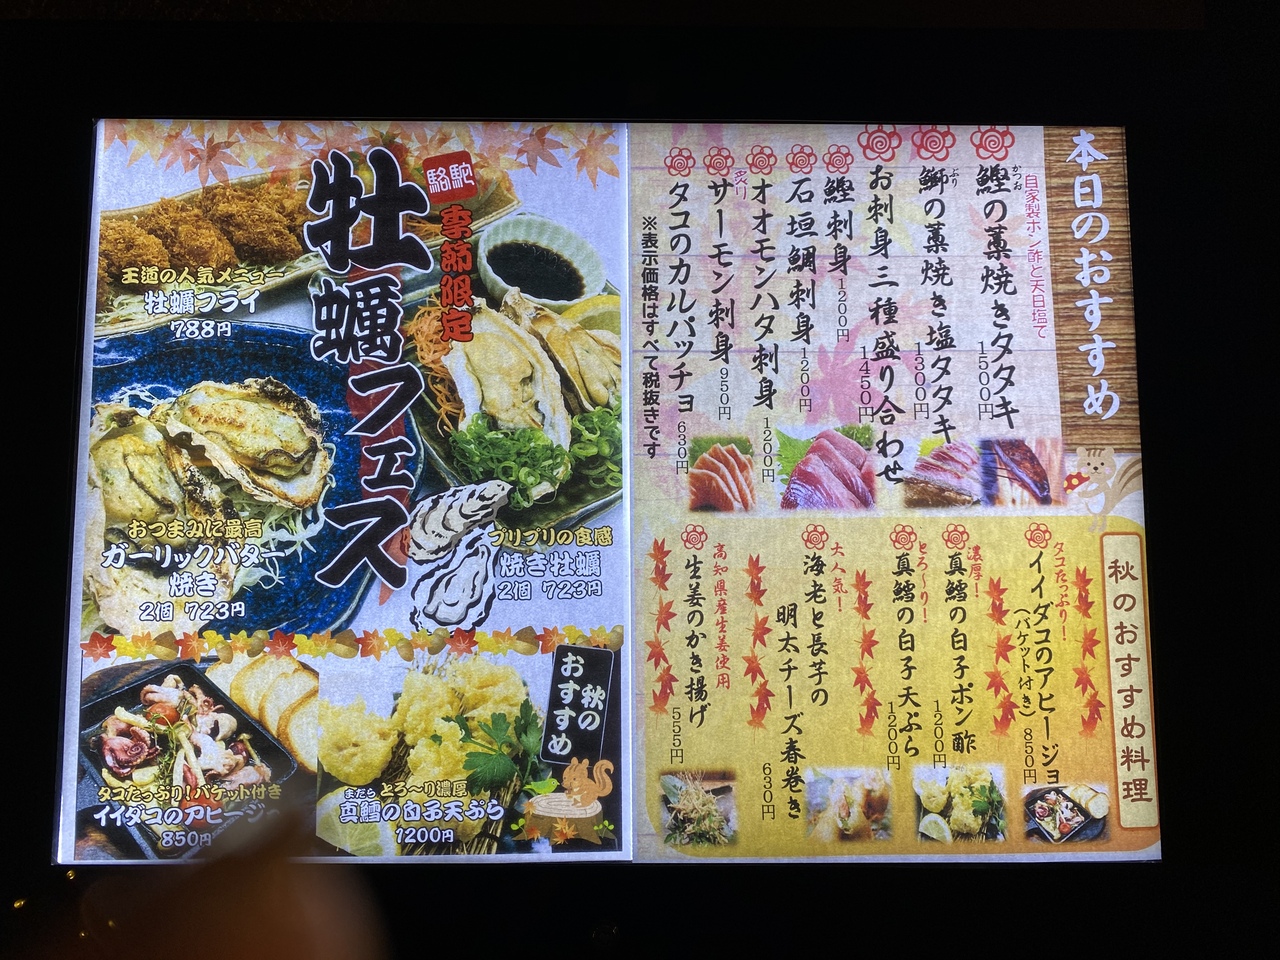 駱駝
季節限定
牡蠣フェス
王道の人気メニュー
牡蠣フライ
788円
おつまみに最高
ガーリックバター
焼き
2個 723円
プリプリの食感
焼き牡蠣
2個 723円
秋の
おすすめ
タコたっぷり!バケット付き
イイダコのアヒージョ
850円
とろ〜り濃厚
まだら
真鱈の白子天ぷら
1200円
本日のおすすめ
自家製ポン酢と天日塩で
かつお
鰹の藁焼きタタキ
1500円
ぶり
鰤の藁焼き塩タタキ
1300円
お刺身三種盛り合わせ
1450円
鰹刺身
1200円
石垣鯛刺身
1200円
オオモンハタ刺身
1200円
炙り
サーモン刺身
950円
タコのカルパッチョ
630円
※表示価格はすべて税抜きです
秋のおすすめ料理
タコたっぷり!
イイダコのアヒージョ
(バケット付き)
850円
濃厚!
真鱈の白子ポン酢
1200円
とろ〜り!
真鱈の白子天ぷら
1200円
大人気!
海老と長芋の
明太チーズ春巻き
630円
高知県産生姜使用
生姜のかき揚げ
555円